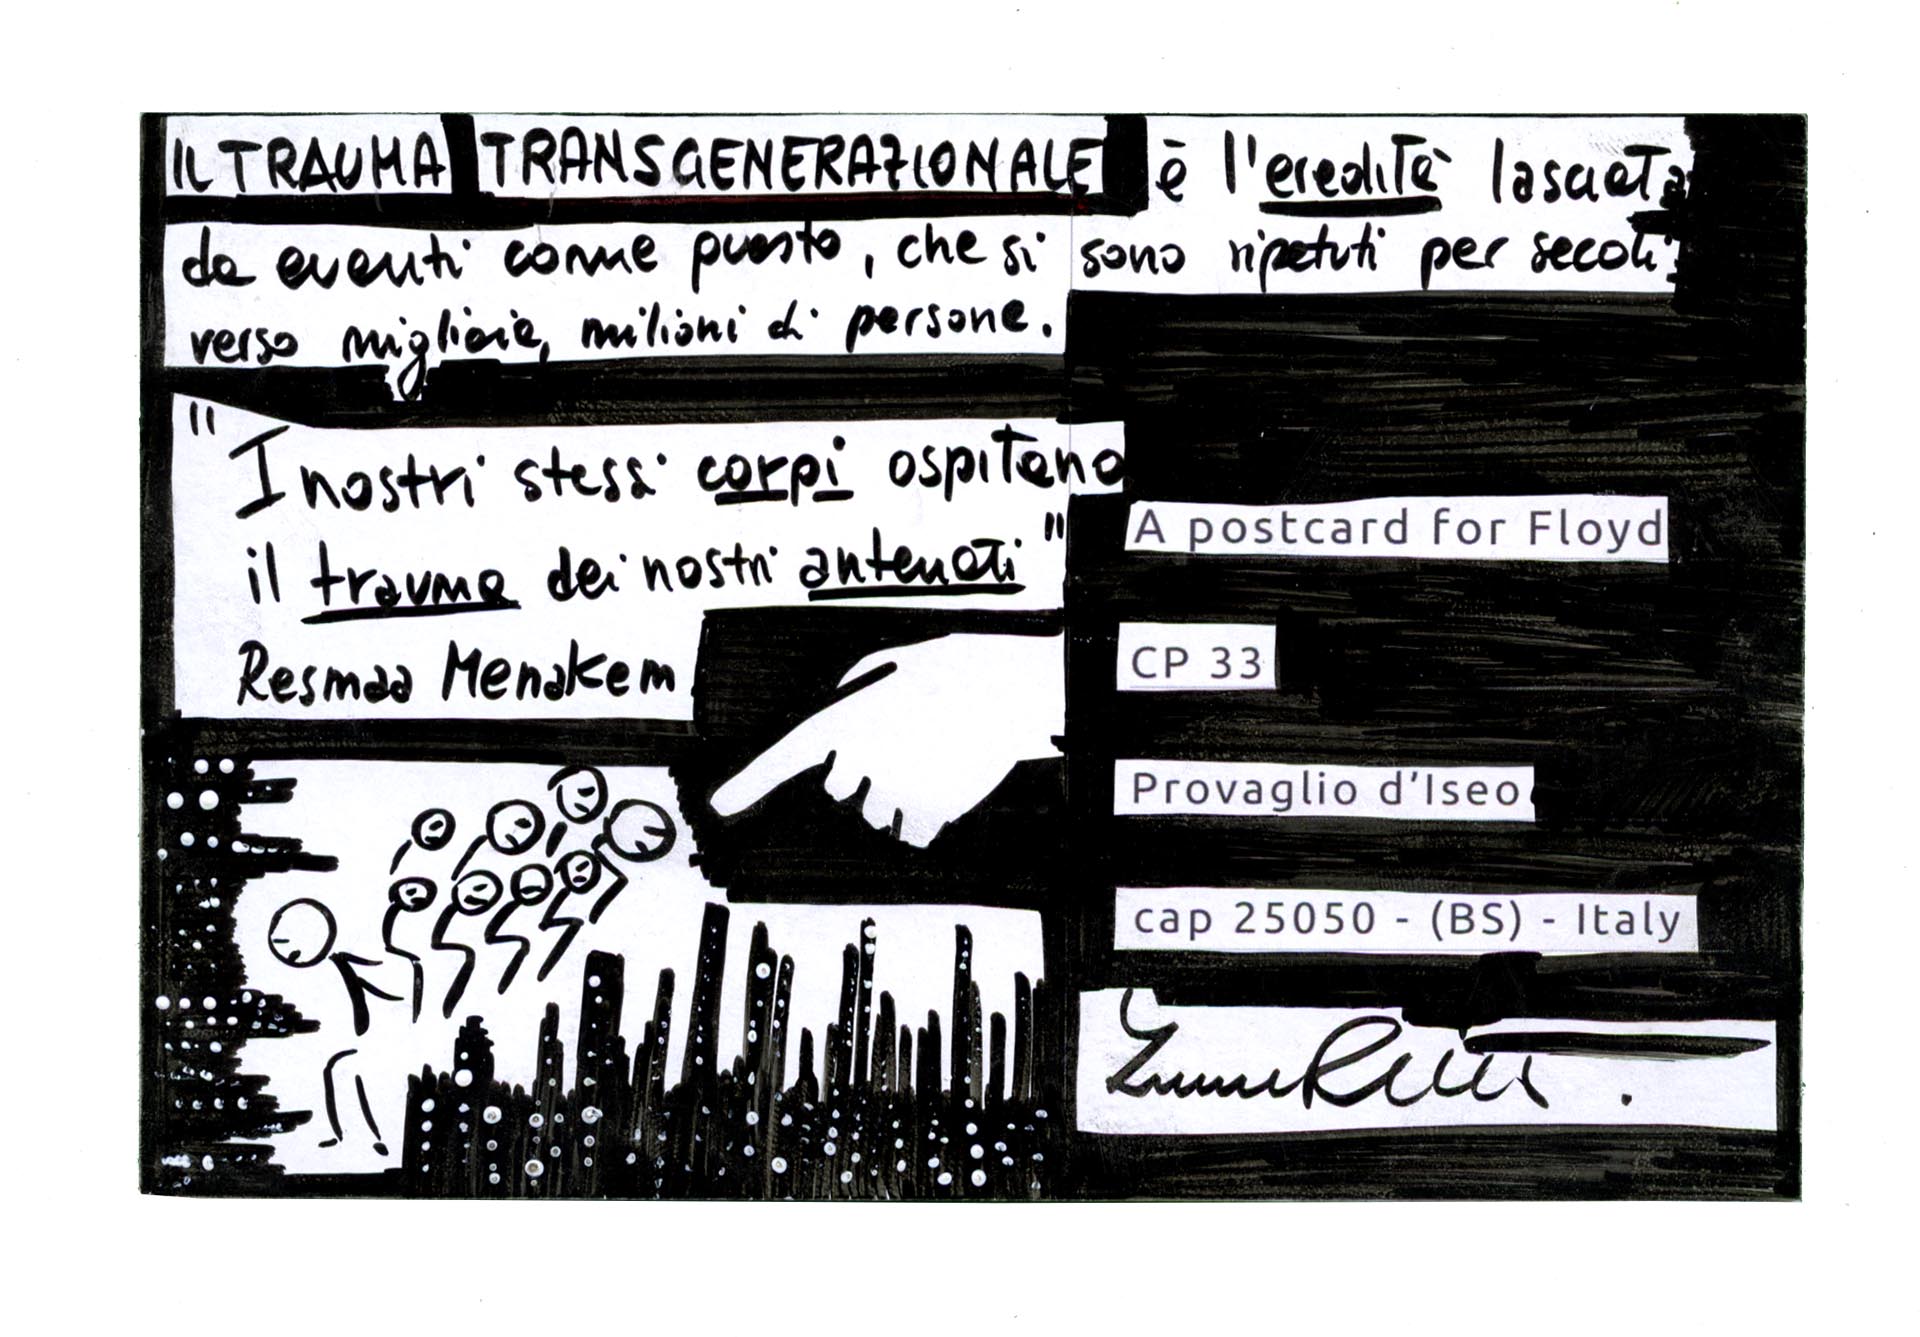 IL TRAUMA TRANSGENERAZIONALE è l'eredità lasciata
da eventi come questo, che si sono ripetuti per secoli
verso migliaia, milioni di persone.
"I nostri stessi corpi ospitano
il trauma dei nostri antenati"
Resmaa Menakem
A postcard for Floyd
CP 33
Provaglio d'Iseo
cap 25050 - (BS) - Italy